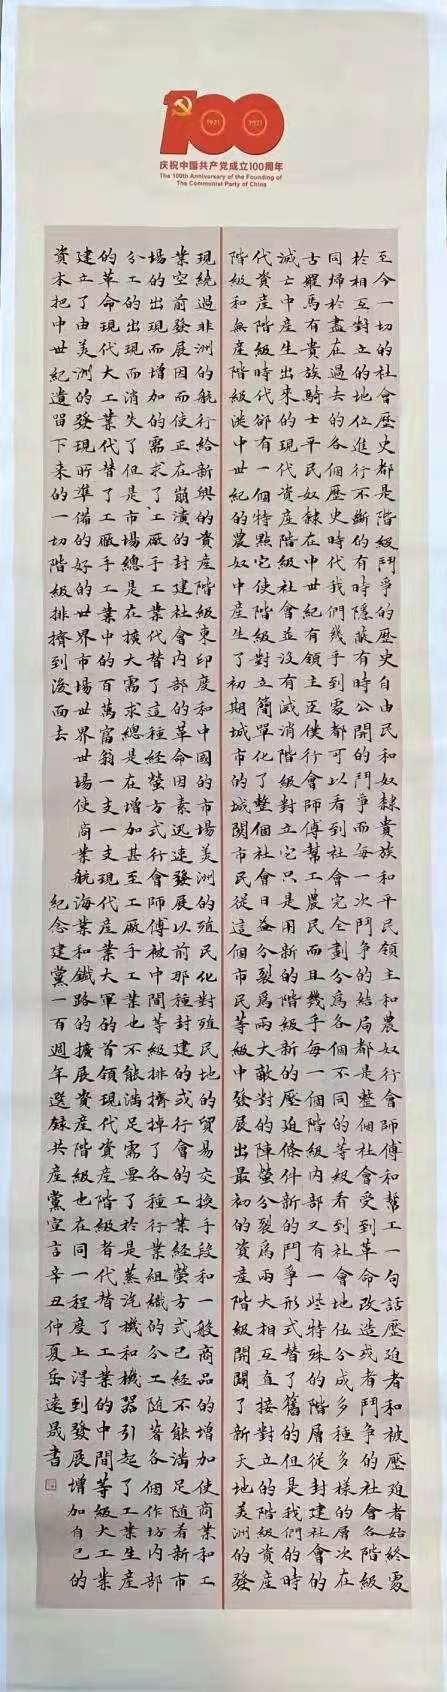 100
1921
2021
庆祝中国共产党成立100周年
The 100th Anniversary of the Founding of
The Communist Party of China
至今一切的社會歷史都是階級鬥爭的歷史自由民和奴隸貴族和平民領主和農奴行會師傅和幫工一句話壓迫者和被壓迫者始終處
於相互對立的地位進行不斷的有時隱蔽有時公開的鬥爭而每一次鬥爭的結局都是整個社會受到革命改造或者鬥爭的社會各階級
同歸於盡在過去的各個歷史時代我們幾乎到處都可以看到社會完全劃分為各個不同的等級看到社會地位分成多種多樣的層次在
古羅馬有貴族騎士平民奴隸在中世紀有領主臣僕行會師傅幫工農民而且幾乎每一個階級內部又有一些特殊的階層從封建社會的
滅亡中產生出來的現代資產階級社會並沒有消滅階級對立它只是用新的階級新的壓迫條件新的鬥爭形式替了舊的但是我們的時
代資產階級時代卻有一個特點它使階級對立簡單化了整個社會日益分裂為兩大敵對的陣營分裂為兩大相互直接對立的階級資產
階級和無產階級從中世紀的農奴中產生了初期城市的城關市民從這個市民等級中發展出最初的資產階級開闢了新天地美洲的發
現繞過非洲的航行給新興的資產階級東印度和中國的市場美洲的殖民化對殖民地的貿易交換手段和一般商品的增加使商業和工
業空前發展因而使正在崩潰的封建社會內部的革命因素迅速發展以前那種封建的或行會的工業經營方式已經不能滿足隨着新市
場的出現而增加的需求了工廠手工業代替了這種經營方式行會師傅被中間等級排擠掉了各種行業組織的分工隨着各個作坊內部
分工的出現而消失了但是市場總是在擴大需求總是在增加甚至工廠手工業也不能滿足需要了於是蒸汽機和機器引起了工業生產
的革命現代大工業代替了工廠手工業中的百萬富翁一支一支現代產業大軍的首領現代資產階級者代替了工業的中間等級大工業
建立了由美洲的發現所準備的好的世界市場世界市場使商業航海業和鐵路的擴展資產階級也在同一程度上得到發展增加自己的
資本把中世紀遺留下來的一切階級排擠到後面去
紀念建黨一百週年選錄共產黨宣言辛丑仲夏岳遠晟書